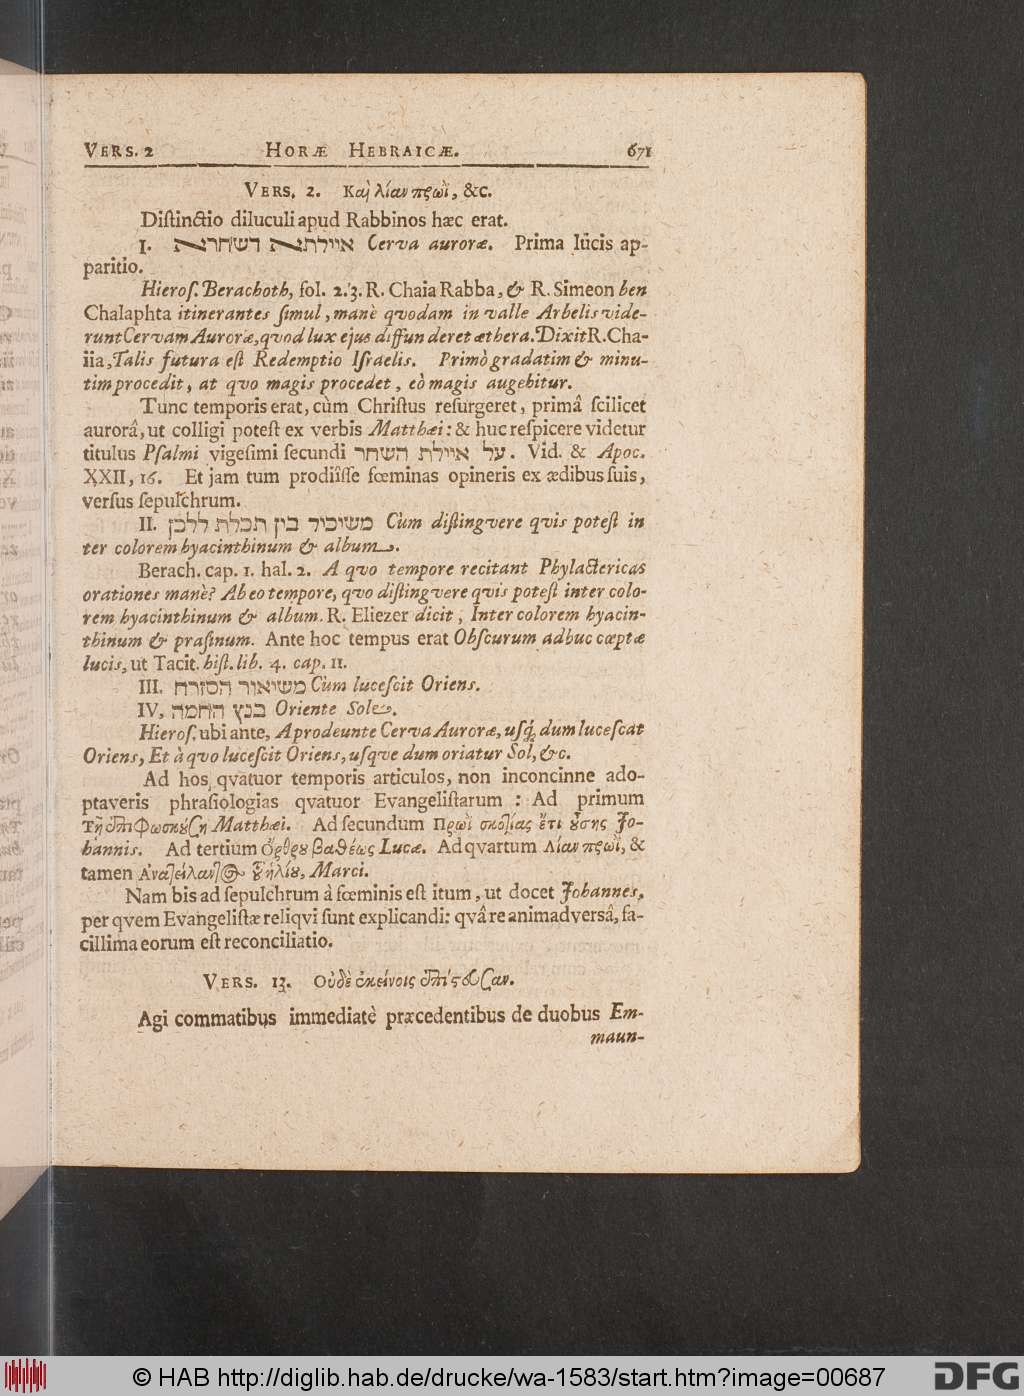 VERS. 2 HORÆ HEBRAICÆ. 671
VERS. 2. Καὶ λίαν πρωῒ, &c.
Distinctio diluculi apud Rabbinos hæc erat.
I. איילתא דשחרא Cerva auroræ. Prima lucis ap-
paritio.
Hieros. Berachoth, fol. 2. 3. R. Chaia Rabba, & R. Simeon ben
Chalaphta itinerantes simul, manè qvodam in valle Arbelis vide-
runt Cervam Auroræ, qvod lux ejus diffunderet æthera. Dixit R. Cha-
iia, Talis futura est Redemptio Israelis. Primò gradatim & minu-
tim procedit, at qvo magis procedet, eò magis augebitur.
Tunc temporis erat, cùm Christus resurgeret, primâ scilicet
aurorâ, ut colligi potest ex verbis Matthæi: & huc respicere videtur
titulus Psalmi vigesimi secundi על איילת השחר. Vid. & Apoc.
XXII, 16. Et jam tum prodiisse fœminas opineris ex ædibus suis,
versus sepulchrum.
II. משיכיר בין תכלת ללבן Cùm distingvere qvis potest in
ter colorem hyacinthinum & album.
Berach. cap. 1. hal. 2. A qvo tempore recitant Phylactericas
orationes manè? Ab eo tempore, qvo distingvere qvis potest inter colo-
rem hyacinthinum & album. R. Eliezer dicit, Inter colorem hyacin-
thinum & prasinum. Ante hoc tempus erat Obscurum adhuc cœptæ
lucis, ut Tacit. hist. lib. 4. cap. 11.
III. משיאור המזרח Cùm lucescit Oriens.
IV, בנץ החמה Oriente Sole.
Hieros. ubi ante, A prodeunte Cerva Auroræ, usq; dum lucescat
Oriens, Et à qvo lucescit Oriens, usqve dum oriatur Sol, &c.
Ad hos qvatuor temporis articulos, non inconcinne ado-
ptaveris phrasiologias qvatuor Evangelistarum : Ad primum
Τῇ ἐπιφωσκούσῃ Matthæi. Ad secundum Πρωῒ σκοτίας ἔτι οὔσης Jo-
hannis. Ad tertium Ὄρθρου βαθέως Lucæ. Ad qvartum Λίαν πρωῒ, &
tamen Ἀνατείλαντος τοῦ ἡλίου, Marci.
Nam bis ad sepulchrum à fœminis est itum, ut docet Johannes,
per qvem Evangelistæ reliqvi sunt explicandi: qvâ re animadversâ, fa-
cillima eorum est reconciliatio.
VERS. 13. Οὐδὲ ἐκείνοις ἐπίστευσαν.
Agi commatibus immediatè præcedentibus de duobus Em-
maun-
© HAB http://diglib.hab.de/drucke/wa-1583/start.htm?image=00687
DFG